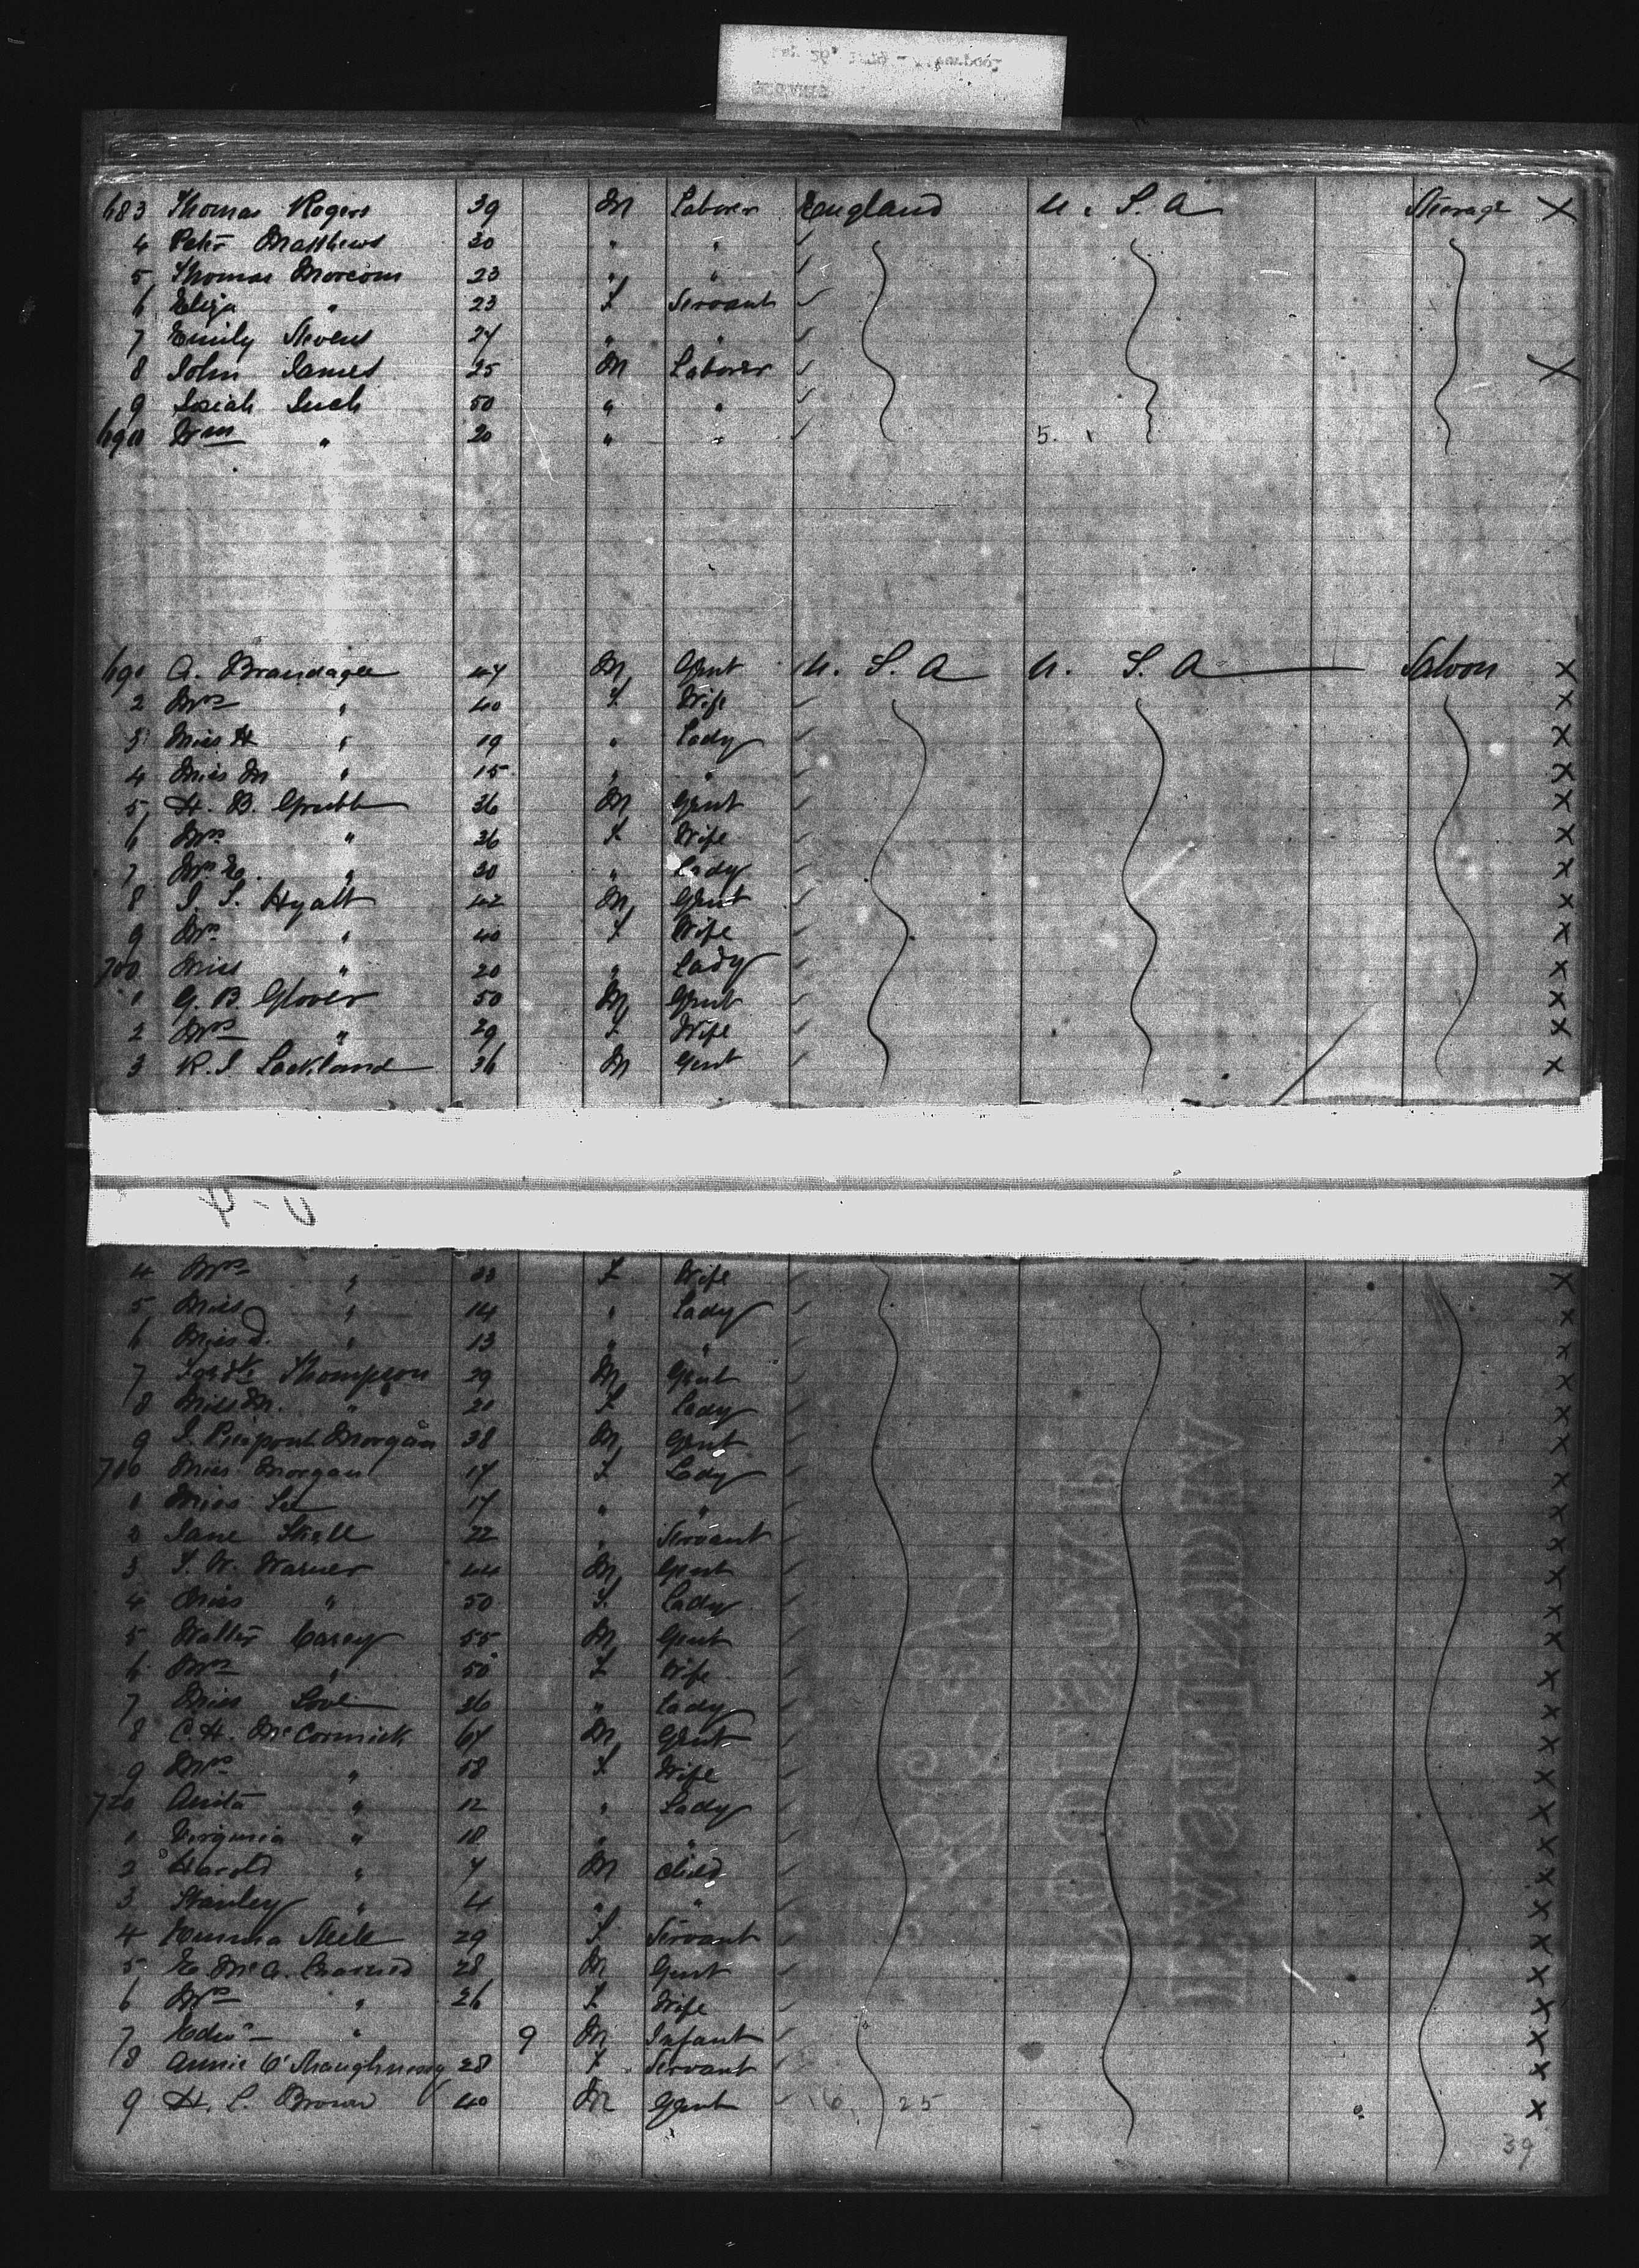 683 Thomas Rogers 39 M Laborer England U. S. A Steerage X
4 Peter Matthews 30 " " ✓
5 Thomas Morcom 23 " " ✓
6 Eliza " 23 F Servant ✓
7 Emily Stevens 24 " " ✓
8 John James 25 M Laborer ✓ X
9 Josiah Such 50 " " ✓
690 Wm " 20 " " ✓ 5.
690 A. Brandagee 47 M Gent U. S. A U. S. A Saloon X
2 Mrs " 40 F Wife ✓ X
3 Miss H " 19 " Lady ✓ X
4 Miss M " 15 " " ✓ X
5 H. B. Grubb 36 M Gent ✓ X
6 Mrs " 36 F Wife ✓ X
7 Mrs E. " 30 " Lady ✓ X
8 Hyatt 42 M Gent ✓ X
9 Mrs " 40 F Wife ✓ X
700 Miss " 20 " Lady ✓ X
1 G. B Glover 50 M Gent ✓ X
2 Mrs " 29 F Wife ✓ X
3 R. J. Lackland 36 M Gent ✓ X
4 Mrs " 33 F Wife ✓ X
5 Miss " 14 " Lady ✓ X
6 Miss J. " 13 " " X
7 Thompson 29 M Gent ✓ X
8 Miss M. " 21 F Lady ✓ X
9 J. Pierpont Morgan 38 M Gent ✓ X
700 Miss Morgan 17 F Lady ✓ X
1 Miss Lee 17 " " ✓ X
2 Jane 22 " Servant ✓ X
3 Warner 44 M Gent ✓ X
4 Miss " 50 F. Lady ✓ X
5 Walter Carey 55 M Gent ✓ X
6 Mrs " 50 F Wife ✓ X
7 Miss Love 26 " Lady ✓ X
8 C. H. McCormick 64 M Gent ✓ X
9 Mrs " F Wife ✓ X
720 Anita " 12 " Lady ✓ X
1 Virginia " 18 " " ✓ X
2 Harold " 7 M Child ✓ X
3 Stanley " 4 " " ✓ X
4 Emma Steele 29 F Servant ✓ X
5 28 M Gent ✓ X
6 Mrs " 26 F Wife ✓ X
7 Edw " 9 M Infant ✓ X
8 Annie O'Shaughnessy 28 F Servant ✓ X
9 H. L. Brown 40 M Gent ✓ 6. 25 X
39